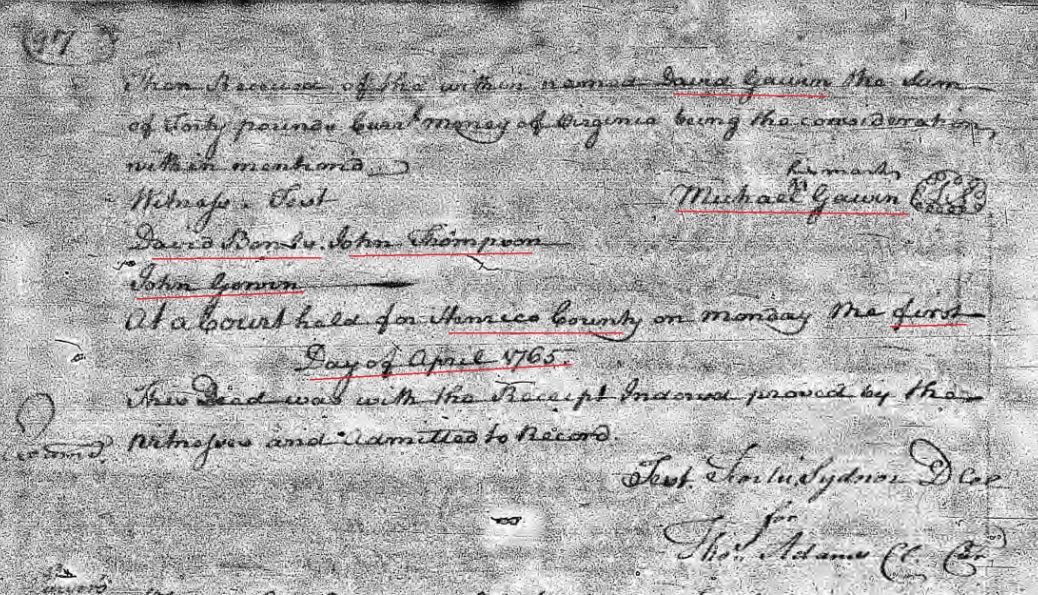 Then Received of the within named David Gawin the Sum
of Forty pounds Curr.t money of Virginia being the consideration
within mentiond
his mark
Witness. Test Michael M Gawin LS
David Bowls. John Thompson
John Gowin
At a Court held for Henrico County on monday the first
Day of April 1765.
This Deed was with the Receipt Indorsd proved by the
witnesses and admitted to Record.
Test. Fortu.s Sydnor D Clk
for
Tho.s Adams Cl. Cur